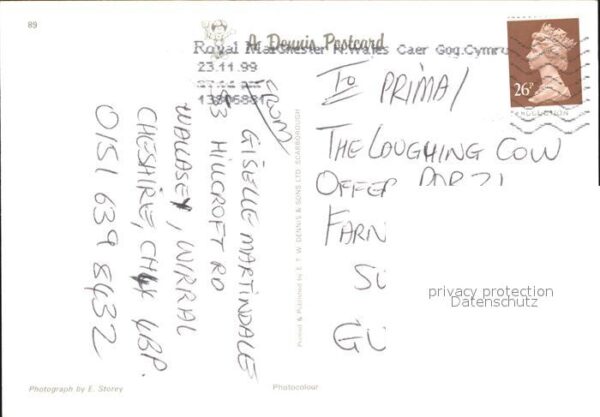 89
A Dennis Postcard
Royal Mail Chester N.Wales Caer Gog.Cymru
23.11.99
26P
TO PRIMA/
THE LAUGHING COW
OFFER
FARN
SU
GU
FROM
GISELLE MARTINDALE
53 HILLCROFT RD
WALLASEY, WIRRAL
CHESHIRE, CH44 4BP.
0151 639 8432
Printed & Published by E. T. W. DENNIS & SONS LTD. SCARBOROUGH
privacy protection
Datenschutz
Photograph by E. Storey
Photocolour